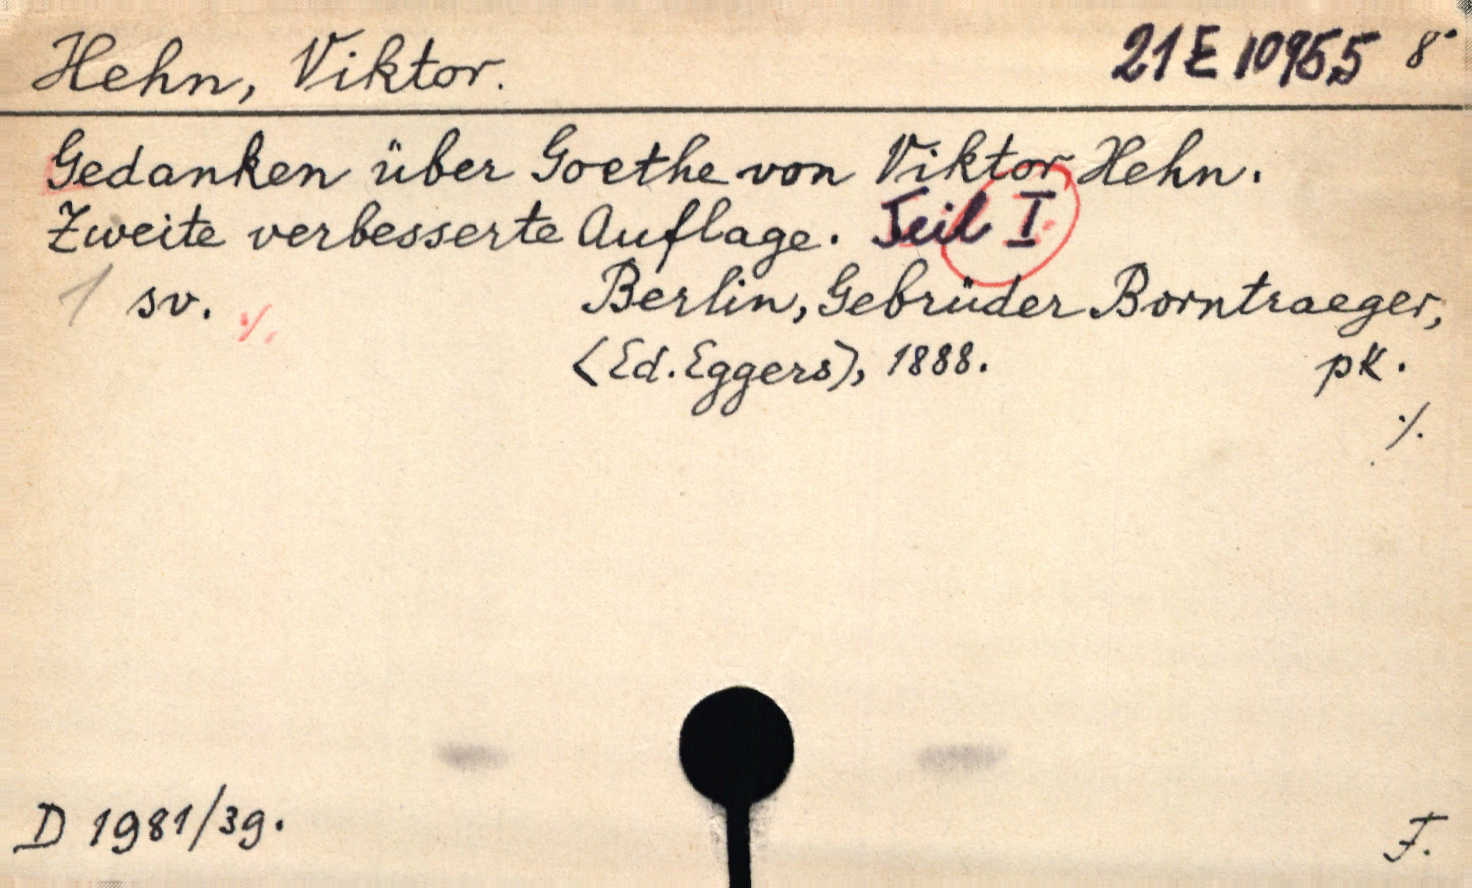 Hehn, Viktor. 21 E 10955 8°
Gedanken über Goethe von Viktor Hehn.
Zweite verbesserte Auflage. Teil I
1 sv. ./. Berlin, Gebrüder Borntraeger,
(Ed. Eggers), 1888. pK.
./.
D 1981/39. F.